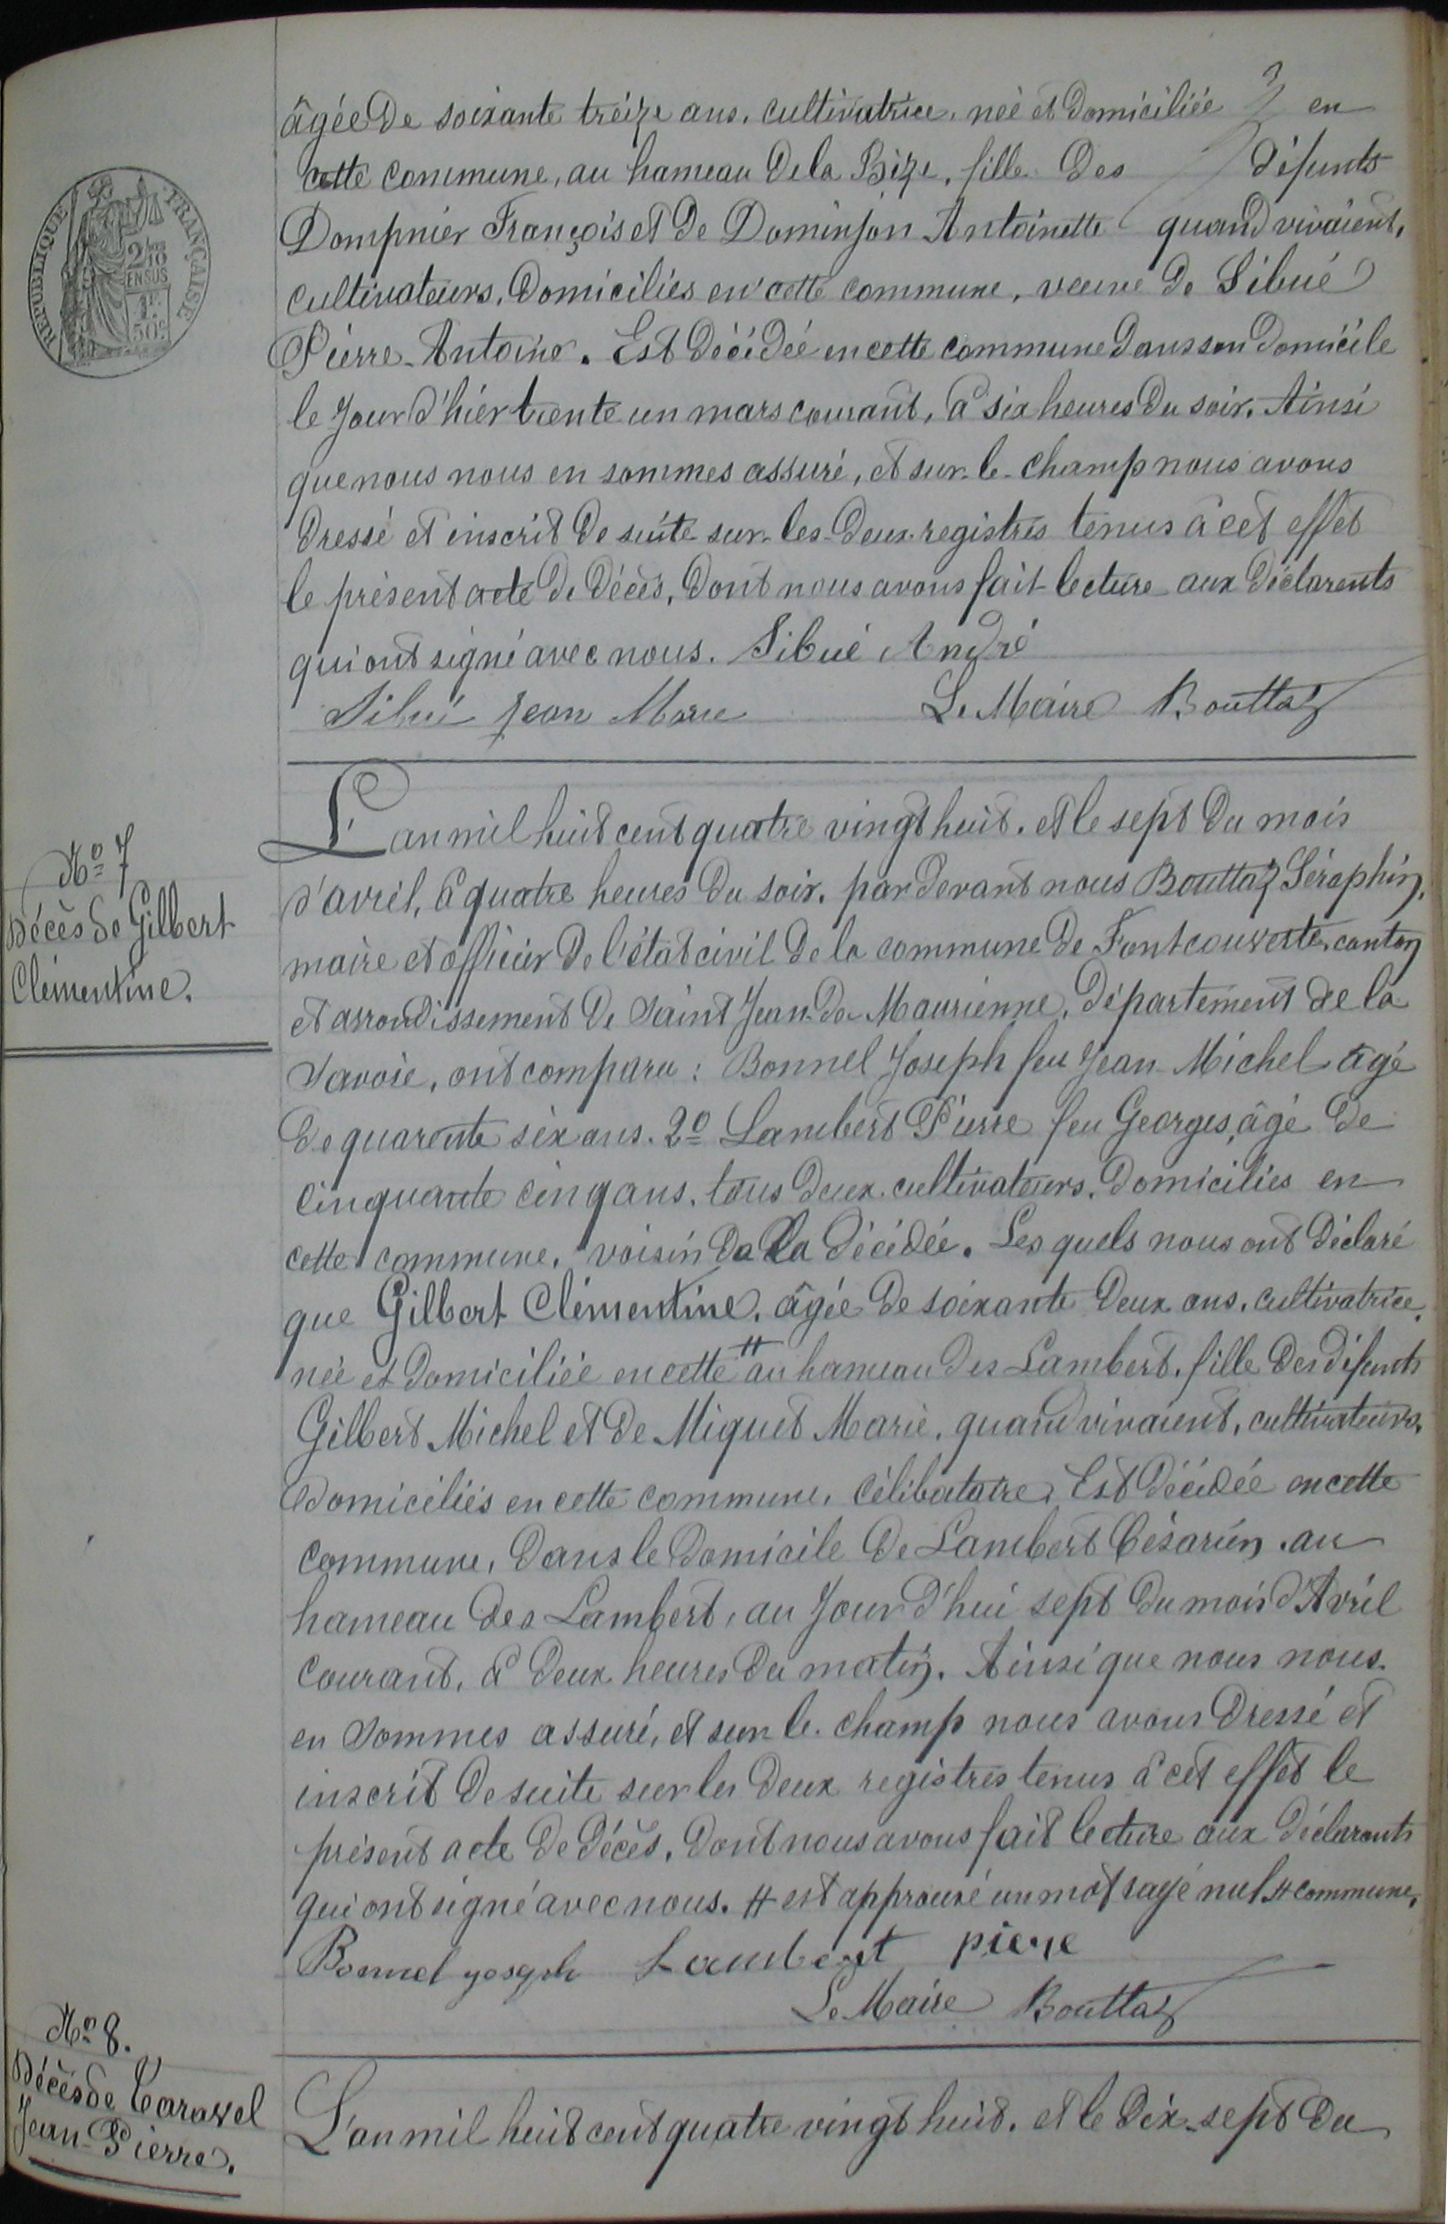 RÉPUBLIQUE FRANÇAISE
2/10
EN SUS
1F.
50c.
âgée de soixante treize ans, cultivatrice, née et domiciliée en
cette commune, au hameau de la Bize, fille des défunts
Dompnier François et de Dominjon Antoinette quand vivaient,
cultivateurs, domiciliés en cette commune, veuve de Sibué
Pierre-Antoine. Est décédée en cette commune dans son domicile
le jour d'hier trente un mars courant, à six heures du soir. Ainsi
que nous nous en sommes assuré, et sur-le-champ nous avons
dressé et inscrit de suite sur les deux registres tenus à cet effet
le présent acte de décès, dont nous avons fait lecture aux déclarents
qui ont signé avec nous. Sibué André
Sibué Jean Marie Le Maire Bouttaz
No 7
Décès de Gilbert
Clémentine.
L'an mil huit cent quatre vingt huit. et le sept du mois
d'avril, à quatre heures du soir. par devant nous Bouttaz Séraphin,
maire et officier de l'état civil de la commune de Fontcouverte, canton
et arrondissement de Saint Jean-de-Maurienne, département de la
Savoie, ont comparu : Bonnel Joseph feu Jean-Michel âgé
de quarente six ans. 2o Lambert Pierre feu Georges, âgé de
cinquante cinq ans. tous deux cultivateurs. domiciliés en
cette commune, voisin de la décédée. Les quels nous ont déclaré
que Gilbert Clémentine, âgée de soixante deux ans, cultivatrice,
née et domiciliée en cette # au hameau des Lambert, fille des défunts
Gilbert Michel et de Miquet Marie, quand vivaient, cultivateurs,
domiciliés en cette commune, célibataire, Est décédée en cette
commune, dans le domicile de Lambert Césarien, au
hameau des Lambert, au jour d'hui sept du mois d'Avril
courant, à deux heures du matin. Ainsi que nous nous
en sommes assuré, et sur le champ nous avons dressé et
inscrit de suite sur les deux registres tenus à cet effet le
présent acte de décès, dont nous avons fait lecture aux déclarants
qui ont signé avec nous. # est approuvé un mot rayé nul # commune,
Bonnel joseph Lambert piere
Le Maire Bouttaz
No 8.
Décès de Caravel
Jean-Pierre.
L'an mil huit cent quatre vingt huit. et le dix-sept du